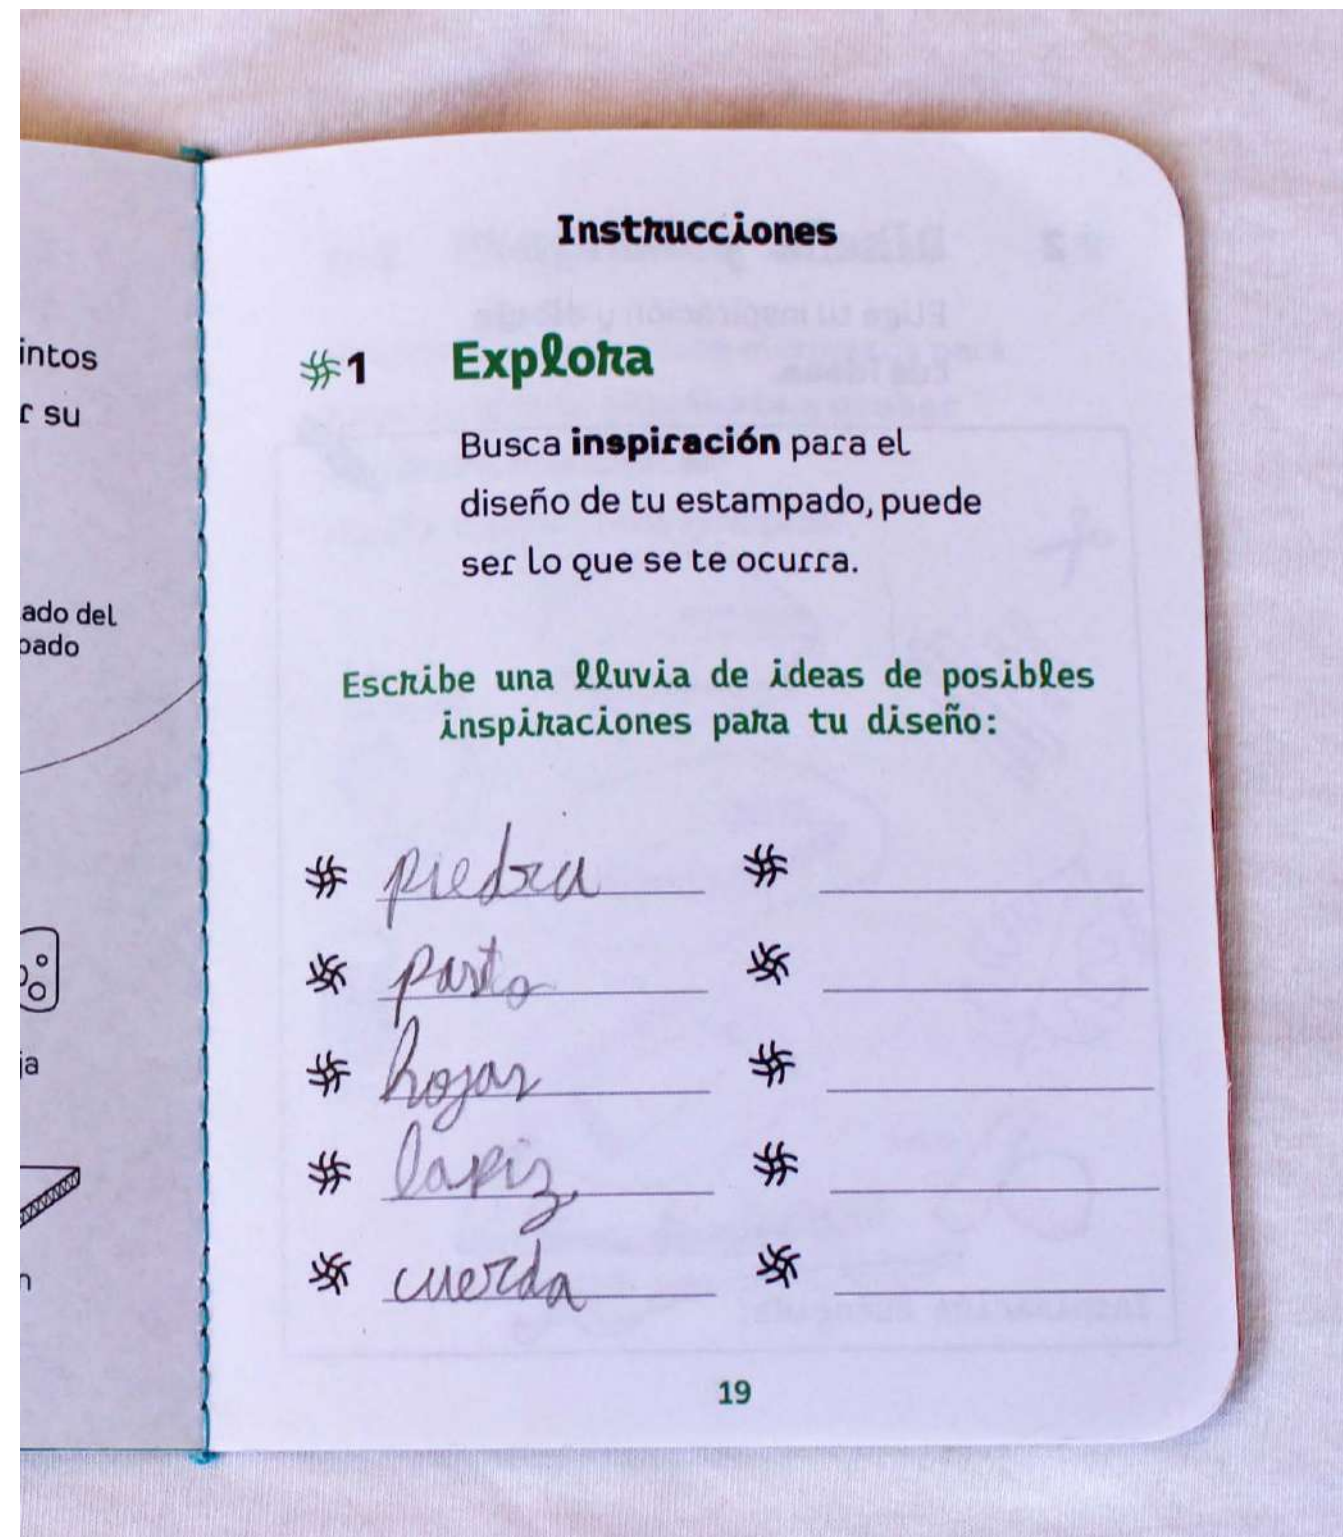 intos
r su
ado del
pado
ja
n
Instrucciones
#1 Explora
Busca inspiración para el
diseño de tu estampado, puede
ser lo que se te ocurra.
Escribe una lluvia de ideas de posibles
inspiraciones para tu diseño:
piedra
pasto
hojas
lapiz
cuerda
19